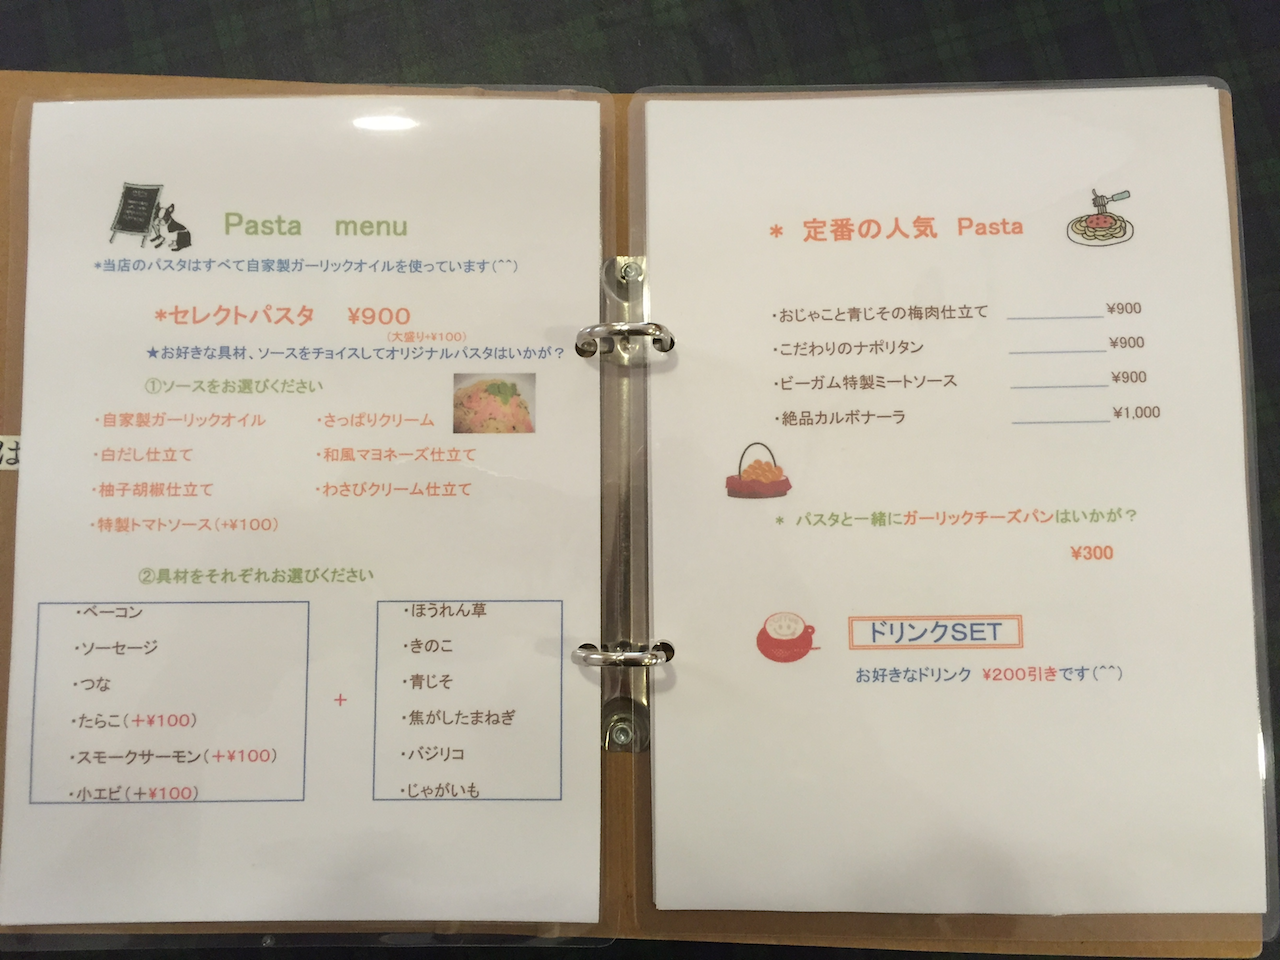 Pasta menu
*当店のパスタはすべて自家製ガーリックオイルを使っています(^^)
*セレクトパスタ ¥900
(大盛り+¥100)
★お好きな具材、ソースをチョイスしてオリジナルパスタはいかが？
①ソースをお選びください
・自家製ガーリックオイル ・さっぱりクリーム
・白だし仕立て ・和風マヨネーズ仕立て
・柚子胡椒仕立て ・わさびクリーム仕立て
・特製トマトソース(+¥100)
②具材をそれぞれお選びください
・ベーコン
・ソーセージ
・つな
・たらこ(＋¥100)
・スモークサーモン(＋¥100)
・小エビ(＋¥100)
+
・ほうれん草
・きのこ
・青じそ
・焦がしたまねぎ
・バジリコ
・じゃがいも
は
* 定番の人気 Pasta
・おじゃこと青じその梅肉仕立て ¥900
・こだわりのナポリタン ¥900
・ビーガム特製ミートソース ¥900
・絶品カルボナーラ ¥1,000
* パスタと一緒にガーリックチーズパンはいかが？
¥300
ドリンクSET
お好きなドリンク ¥200引きです(^^)